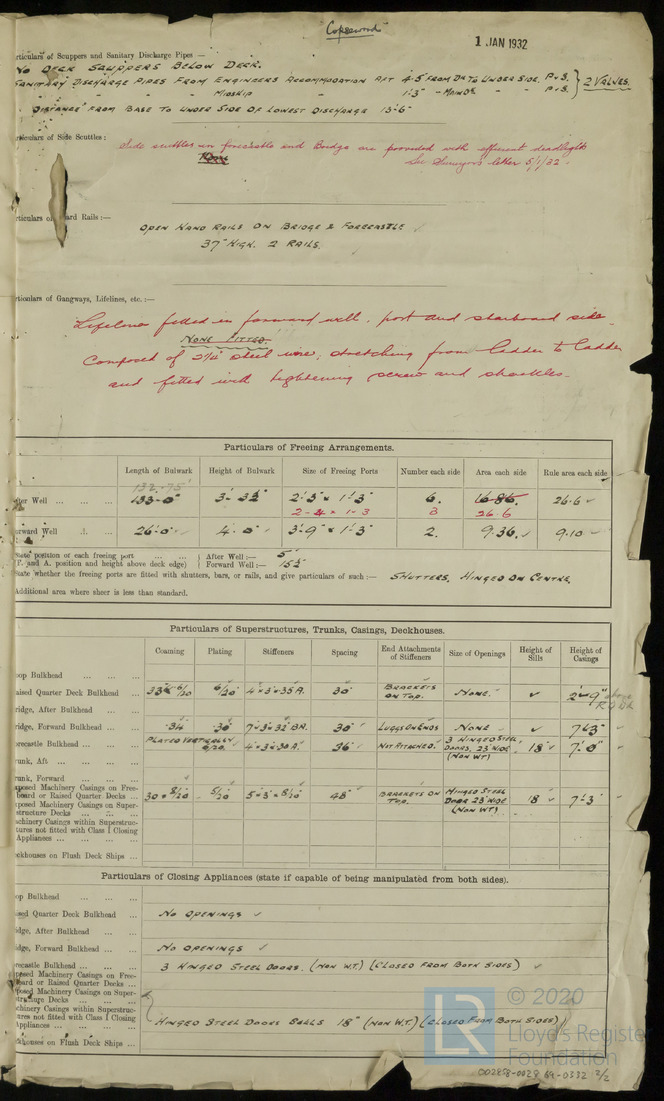 Copsewood
1 JAN 1932
rticulars of Scuppers and Sanitary Discharge Pipes :—
No Deck Scuppers Below Deck.
Sanitary Discharge Pipes From Engineers Accommodation Aft 4'-5" From Dk To Under Side. P & S. } 2 Valves.
" " " Midship 1'-3" " Main Dk " " P & S.
Distance From Base To Under Side Of Lowest Discharge 15'-6"
rticulars of Side Scuttles :
Side scuttles in forecastle and Bridge are provided with efficient deadlights
None
See Surveyors letter 5/1/32.
rticulars of ard Rails :—
Open Hand Rails On Bridge & Forecastle
37" High. 2 Rails.
rticulars of Gangways, Lifelines, etc. :—
Lifelines fitted in forward well, port and starboard side.
None Fitted.
Composed of 2¼" steel wire, stretching from ladder to ladder
and fitted with tightening screw and shackles.
Particulars of Freeing Arrangements.
Length of Bulwark Height of Bulwark Size of Freeing Ports Number each side Area each side Rule area each side
132.75'
fter Well ... ... ... 133'-0" 3'-3½" 2'-5" × 1'-3" 6. 16.86. 26.6
2-4 × 1-3 3 26.6
orward Well ... ... 26'-0" 4'-0" 3'-9" × 1'-3" 2. 9.36. 9.10
State position of each freeing port ... ... ... After Well :— 5"
(F. and A. position and height above deck edge) Forward Well :— 15½"
State whether the freeing ports are fitted with shutters, bars, or rails, and give particulars of such :— Shutters, Hinged On Centre.
Additional area where sheer is less than standard.
Particulars of Superstructures, Trunks, Casings, Deckhouses.
Coaming Plating Stiffeners Spacing End Attachments of Stiffeners Size of Openings Height of Sills Height of Casings
oop Bulkhead ... ... ...
aised Quarter Deck Bulkhead ... 33 × 6/20 6/20 4 × 3 × .35 A. 30" Brackets On Top. None. 2'-9" above R.Q.Dk
ridge, After Bulkhead ... ...
ridge, Forward Bulkhead ... ... .34 .30 7 × 3 × .32 B.A. 30" Luggs On Ends None 7'-3"
orecastle Bulkhead ... ... Plated Vertically 6/20. 4 × 3 × .30 A. 36" Not Attached. 3 Hinged Steel Doors, 23" Wide (Non WT) 18" 7'-0"
runk, Aft ... ... ... ...
runk, Forward ... ... ...
xposed Machinery Casings on Free-
board or Raised Quarter Decks ... 30 × 8/20 5/20 5 × 3 × 8/20 48" Brackets On Top. Hinged Steel Door 23" Wide (Non WT) 18" 7'-3"
xposed Machinery Casings on Super-
structure Decks ... ... ...
achinery Casings within Superstruc-
tures not fitted with Class I Closing
Appliances ... ... ... ...
eckhouses on Flush Deck Ships ...
Particulars of Closing Appliances (state if capable of being manipulated from both sides).
oop Bulkhead ... ... ...
aised Quarter Deck Bulkhead ... No Openings
idge, After Bulkhead ... ...
idge, Forward Bulkhead ... ... No Openings
recastle Bulkhead ... ... ... 3 Hinged Steel Doors. (Non W.T.) (Closed From Both Sides)
posed Machinery Casings on Free-
board or Raised Quarter Decks ...
posed Machinery Casings on Super-
structure Decks ... ... ...
achinery Casings within Superstruc-
tures not fitted with Class I Closing
Appliances ... ... ... ... Hinged Steel Doors Sills 18" (Non W.T.) (Closed From Both Sides)
ckhouses on Flush Deck Ships ...
© 2020
LR
Lloyd's Register
Foundation
002858-002869-0332 2/2